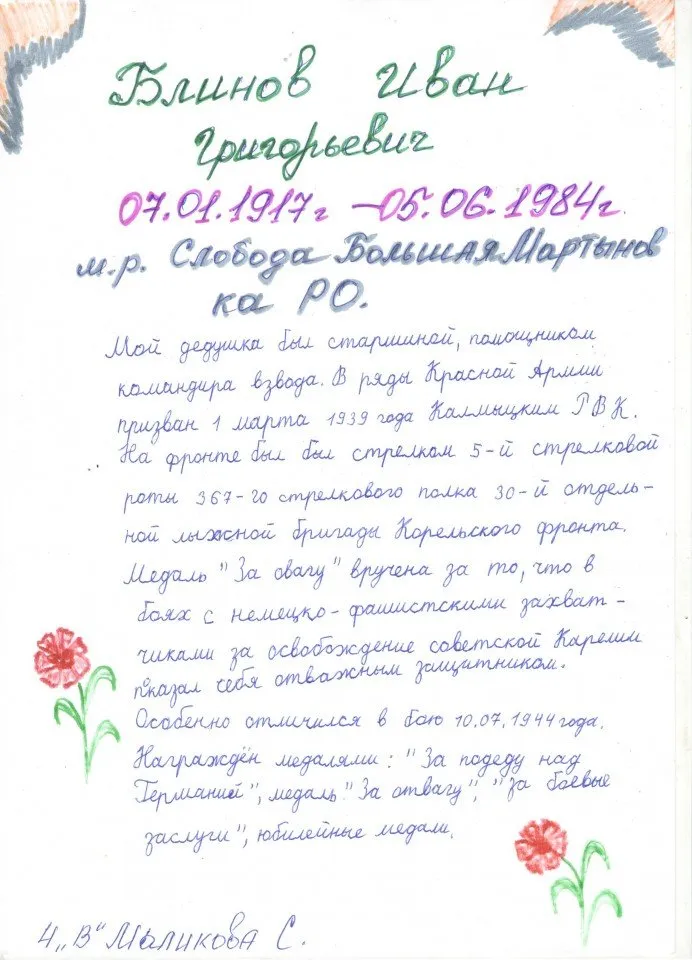 Блинов Иван
Григорьевич
07.01.1917г – 05.06.1984г
м.р. Слобода Большая Мартынов
ка РО.
Мой дедушка был старшиной, помощником
командира взвода. В ряды Красной Армии
призван 1 марта 1939 года Калмыцким РВК.
На фронте был был стрелком 5-й стрелковой
роты 367-го стрелкового полка 30-й отдель-
ной лыжной бригады Корельского фронта.
Медаль "За овагу" вручена за то, что в
боях с немецко-фашистскими захват-
чиками за освобождение советской Карелии
показал себя отважным защитником.
Особенно отличился в бою 10.07.1944 года.
Награждён медалями: "За подеду над
Германией", медаль "За отвагу", "за боевые
заслуги", юбилейные медали.
4 „В" Маликова С.